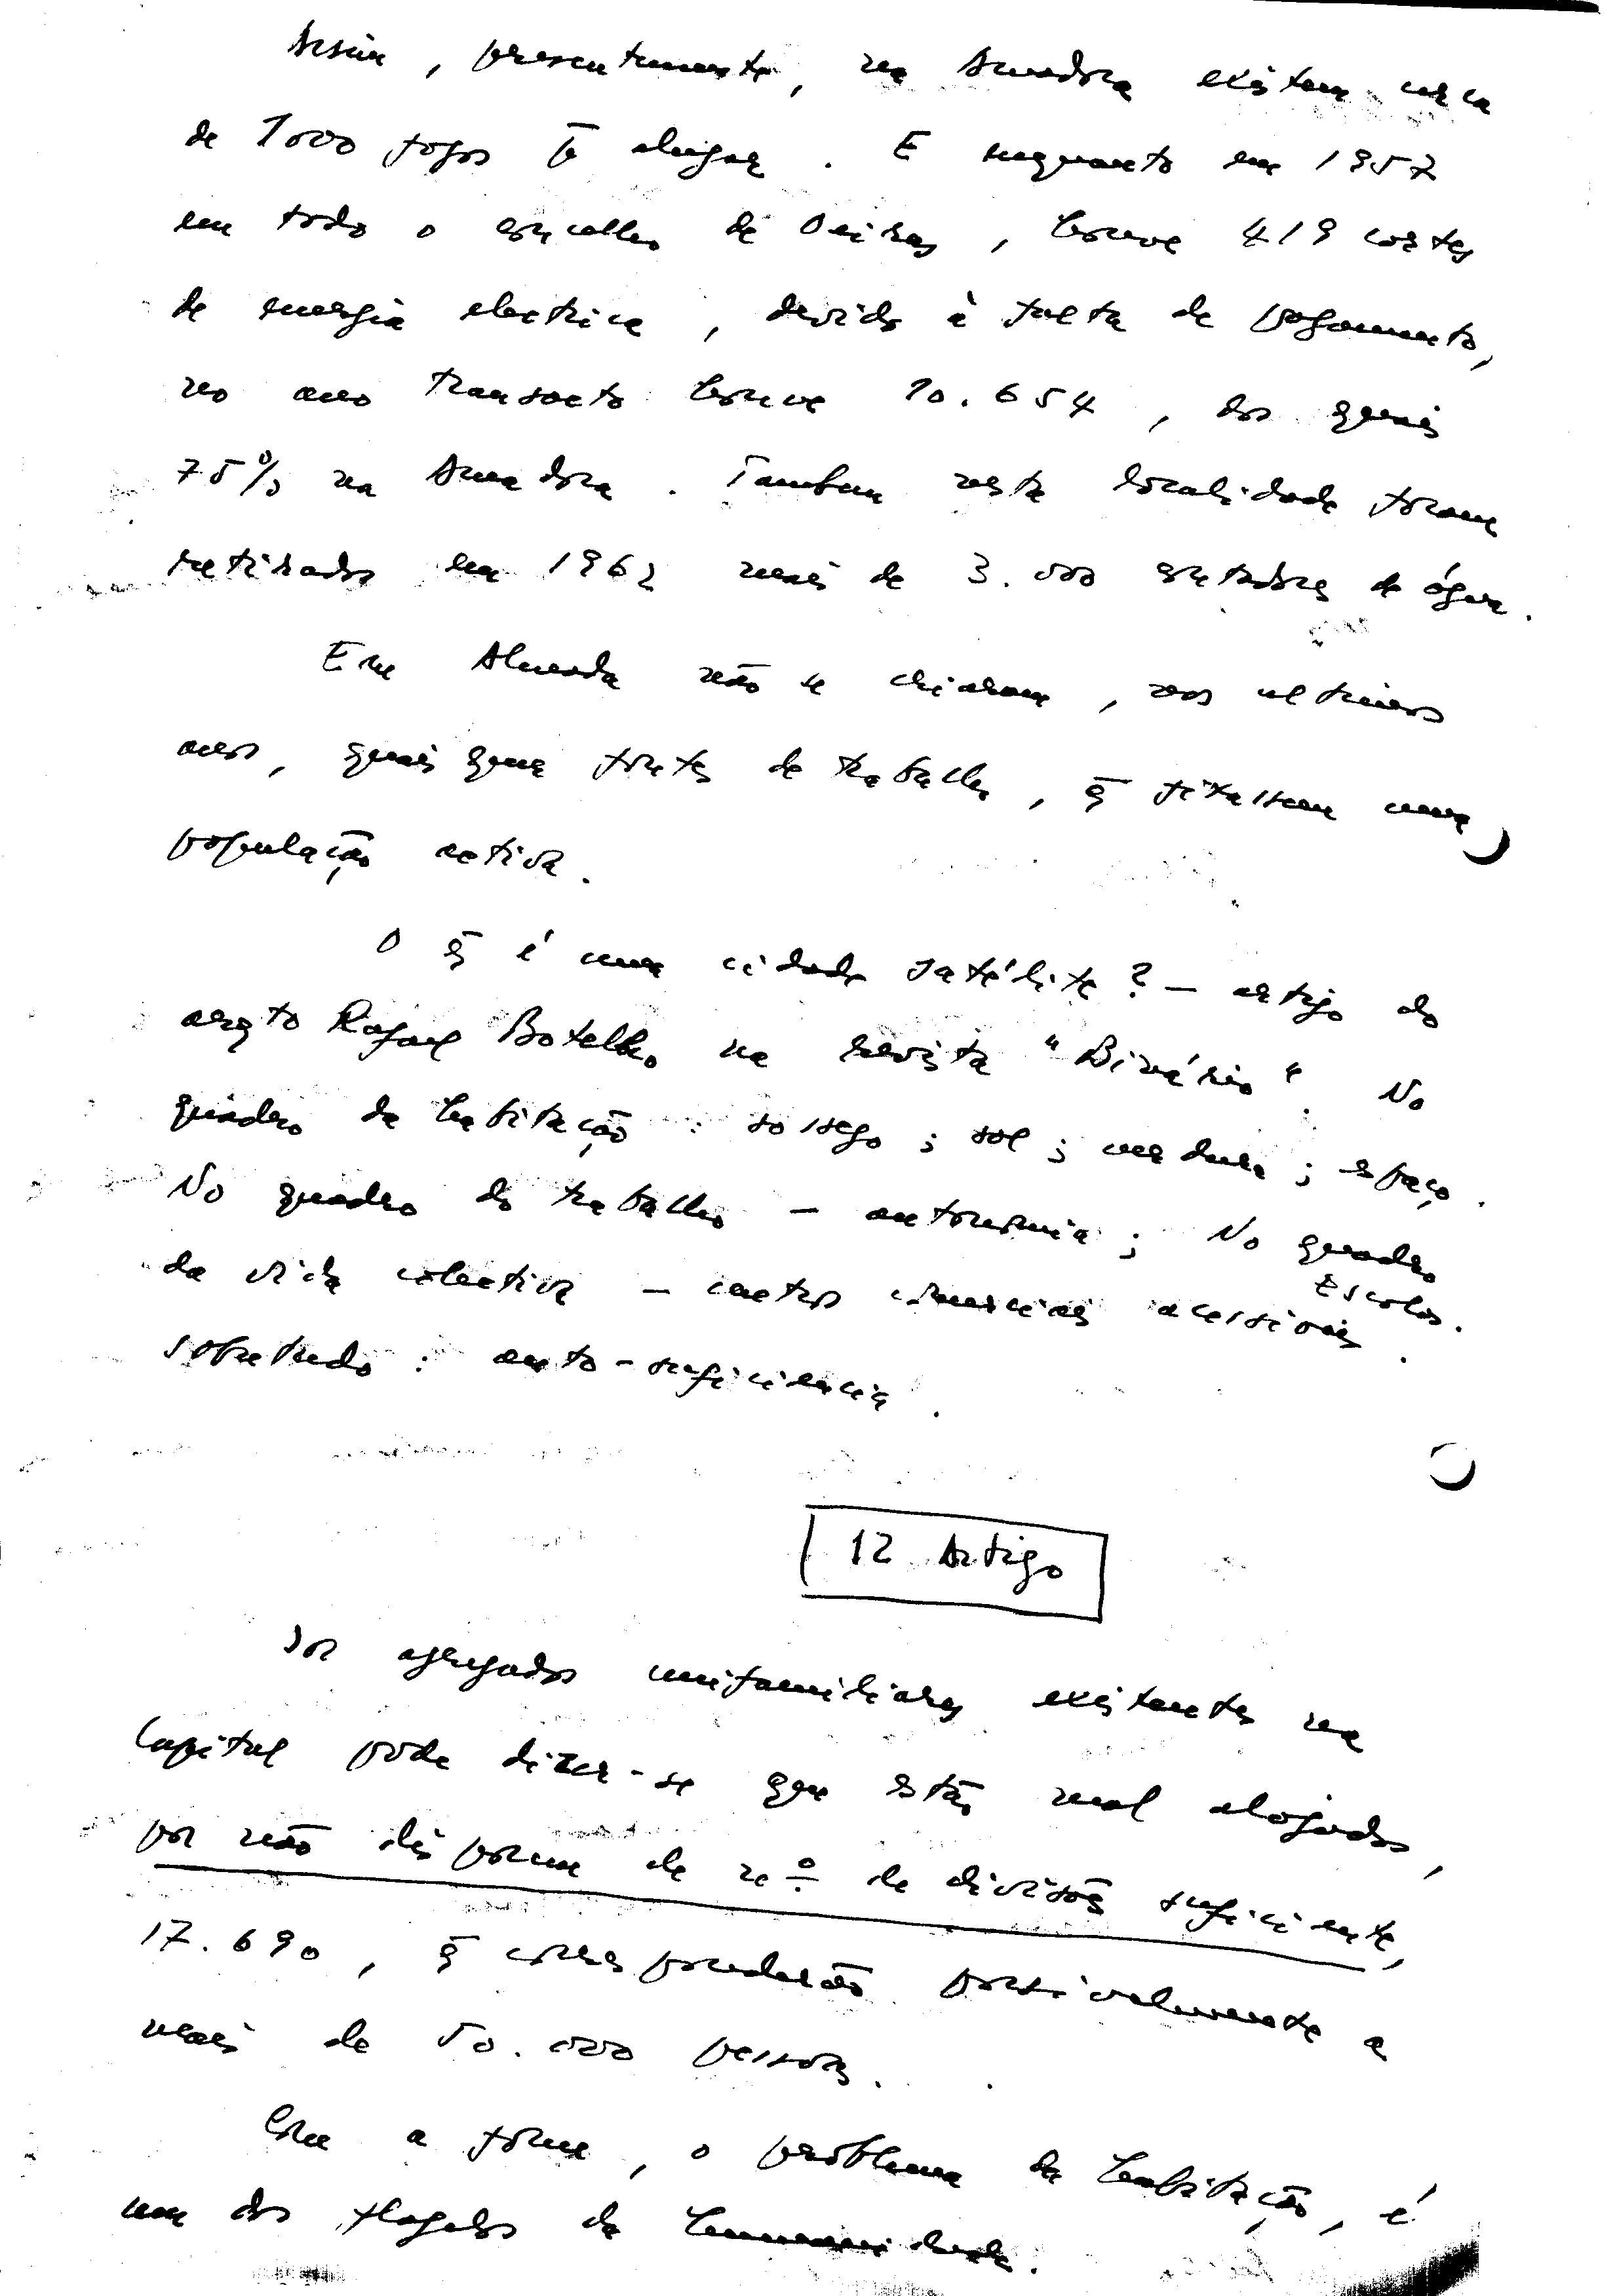 Assim, presentemente, na Amadora existem cerca
de 1000 fogos p̄ alugar. E enquanto em 1957
em todo o concelho de Oeiras, houve 419 cortes
de energia electrica, devido à falta de pagamento,
no ano transacto houve 10.654, dos quais
75% na Amadora. Tambem nesta localidade foram
retirados em 1962 mais de 3.000 contadores de água.
Em Almada não se criaram, nos ultimos
anos, quaisquer fontes de trabalho, q̄ fixassem uma
população activa.
O q̄ é uma cidade satélite? — artigo do
arqto Rafael Botelho na revista "Binário". No
quadro da habitação: sossego; sol; verdura; espaço.
No quadro do trabalho — autonomia; No quadro
Escolas.
da vida colectiva — centros comerciais acessiveis.
sobretudo: auto-suficiencia.
12 Artigo
Dos agregados unifamiliares existentes na
Capital pode dizer-se que estão mal alojados,
por não disporem de nº de divisões suficiente,
17.690, q̄ corresponderão possivelmente a
mais de 50.000 pessoas.
Com a fome, o problema da habitação, é
um dos flagelos da humanidade.